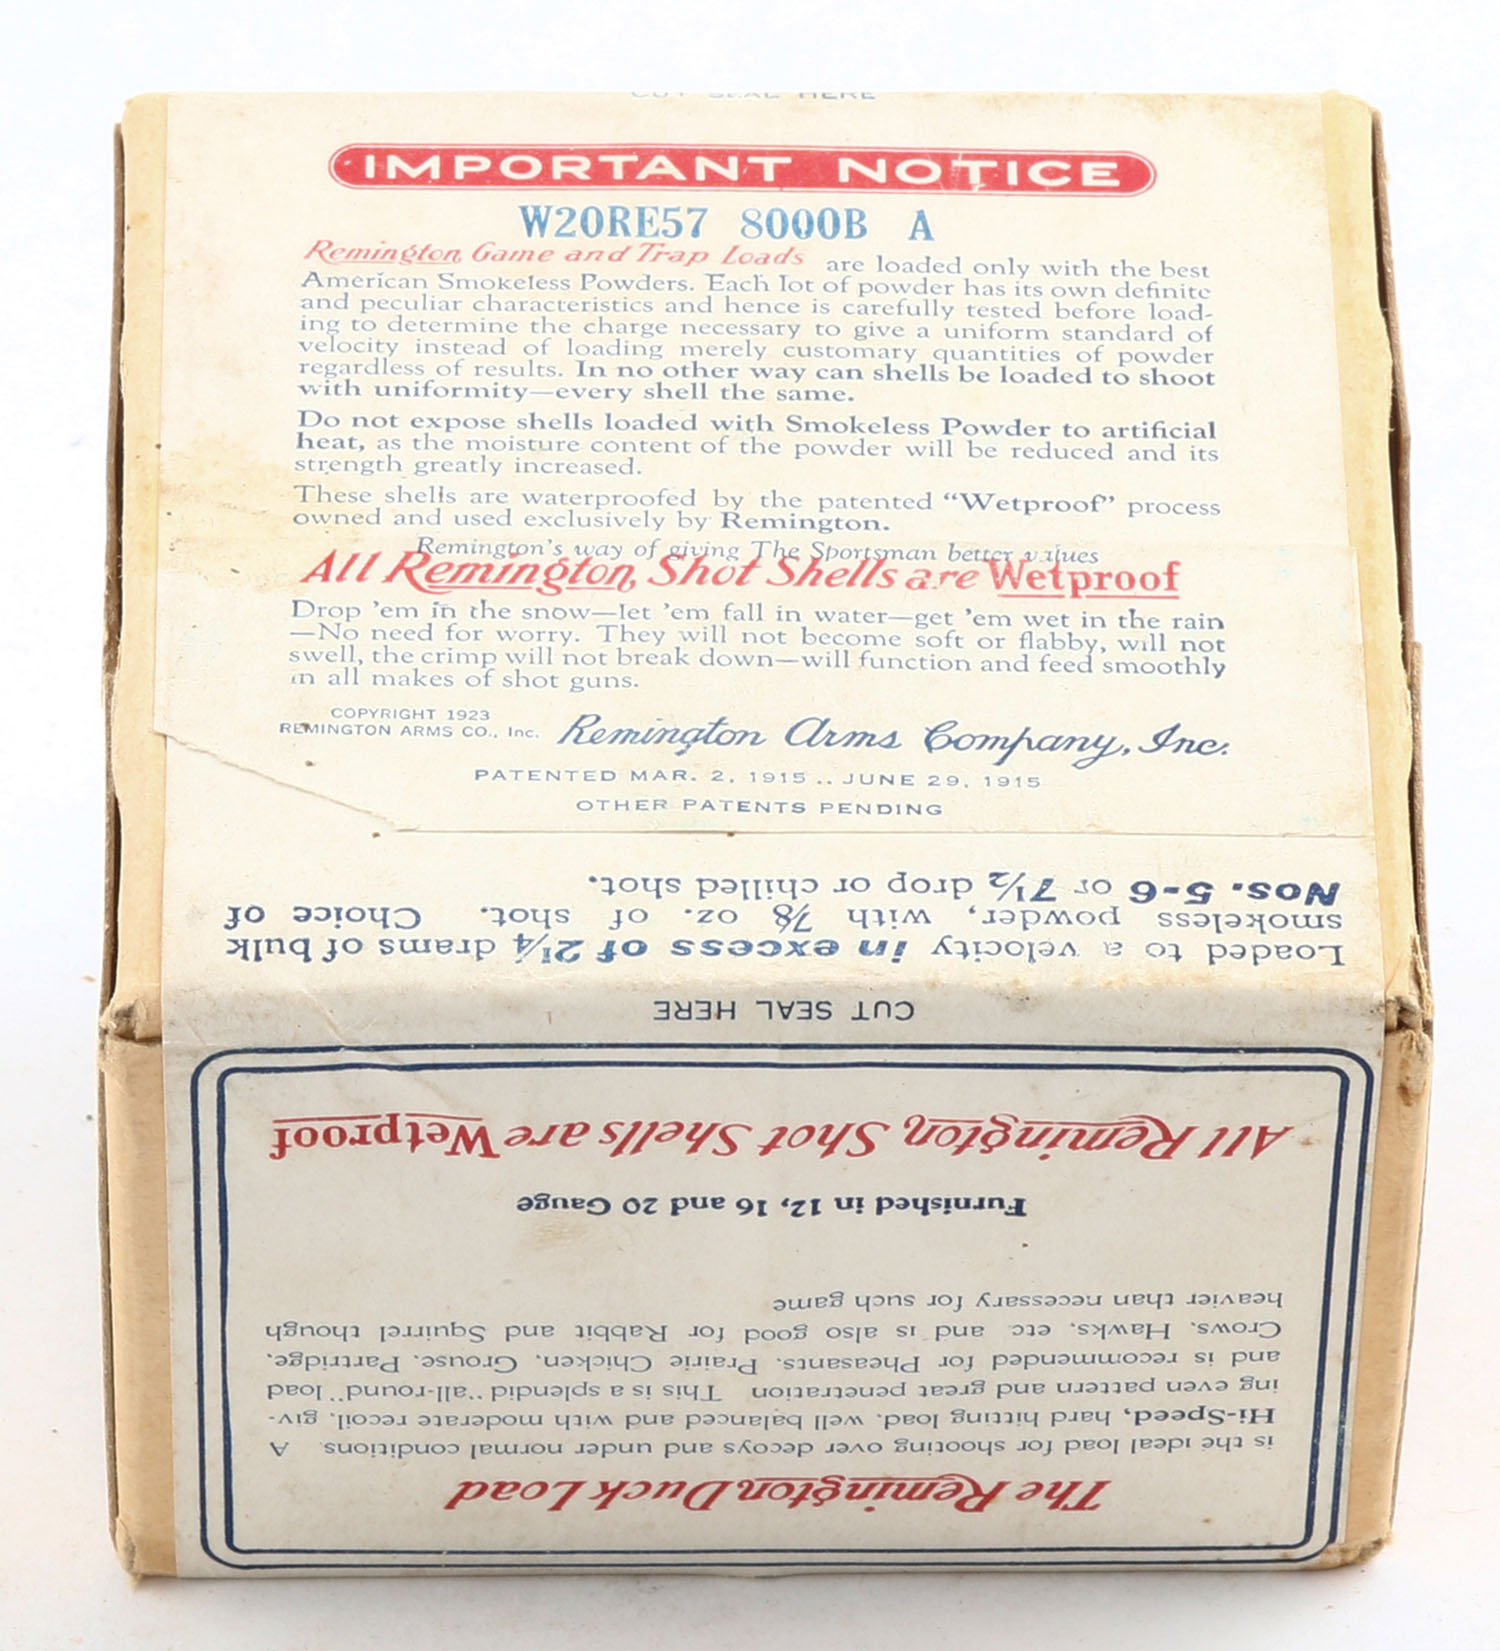 CUT SEAL HERE
IMPORTANT NOTICE
W20RE57 8000B A
Remington Game and Trap Loads are loaded only with the best
American Smokeless Powders. Each lot of powder has its own definite
and peculiar characteristics and hence is carefully tested before load-
ing to determine the charge necessary to give a uniform standard of
velocity instead of loading merely customary quantities of powder
regardless of results. In no other way can shells be loaded to shoot
with uniformity—every shell the same.
Do not expose shells loaded with Smokeless Powder to artificial
heat, as the moisture content of the powder will be reduced and its
strength greatly increased.
These shells are waterproofed by the patented "Wetproof" process
owned and used exclusively by Remington.
Remington's way of giving The Sportsman better values
All Remington Shot Shells are Wetproof
Drop 'em in the snow—let 'em fall in water—get 'em wet in the rain
—No need for worry. They will not become soft or flabby, will not
swell, the crimp will not break down—will function and feed smoothly
in all makes of shot guns.
COPYRIGHT 1923
REMINGTON ARMS CO., Inc.
Remington Arms Company, Inc.
PATENTED MAR. 2, 1915 .. JUNE 29, 1915
OTHER PATENTS PENDING
Loaded to a velocity in excess of 2¼ drams of bulk
smokeless powder, with ⅞ oz. of shot. Choice of
Nos. 5-6 or 7½ drop or chilled shot.
CUT SEAL HERE
The Remington Duck Load
is the ideal load for shooting over decoys and under normal conditions. A
Hi-Speed, hard hitting load, well balanced and with moderate recoil, giv-
ing even pattern and great penetration This is a splendid "all-round" load
and is recommended for Pheasants, Prairie Chicken, Grouse, Partridge,
Crows, Hawks, etc and is also good for Rabbit and Squirrel though
heavier than necessary for such game
Furnished in 12, 16 and 20 Gauge
All Remington Shot Shells are Wetproof